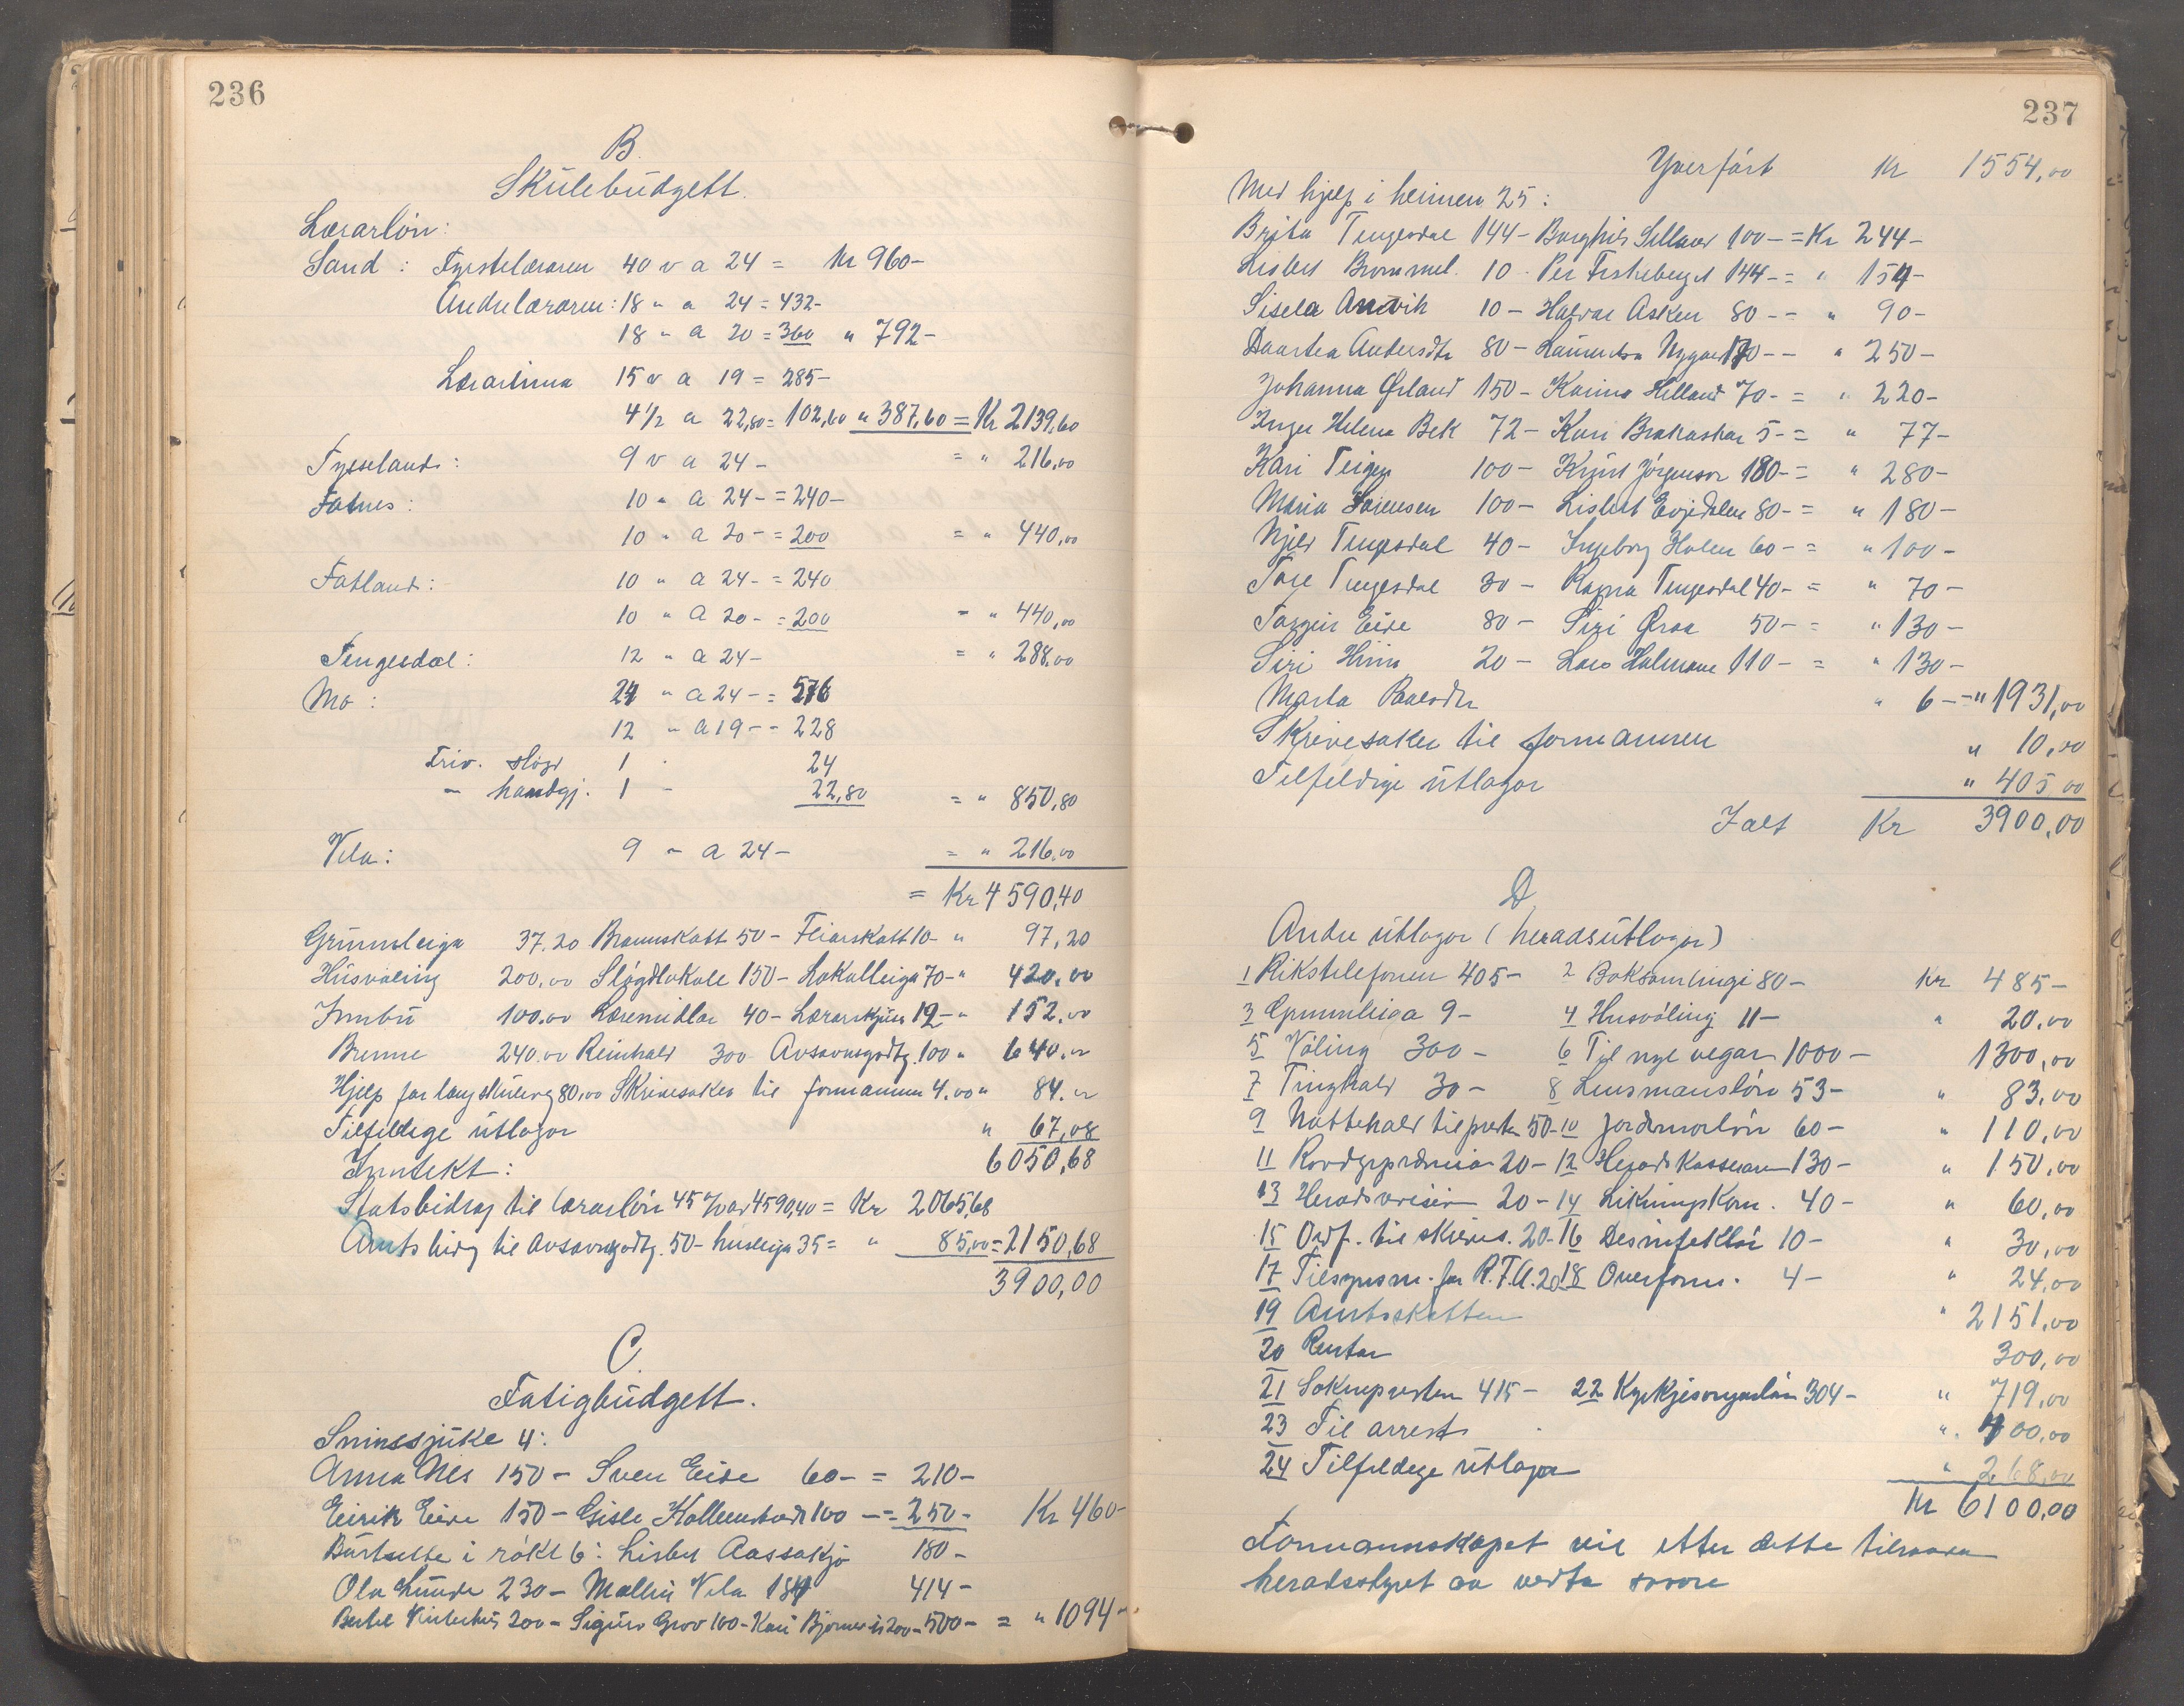 236
B.
Skúlebúdgett.
Lærarlön:
Sand: Fyrstelæraren 40 v a 24 = Kr 960-
Andrelæraren: 18 " a 24 = 432-
18 " a 20 = 360 " 792-
Lærarinna 15 v a 19 = 285-
4 1/2 a 22,80 = 102,60 " 387,60 = Kr 2139,60
Tysseland: 9 v a 24- = " 216,00
Fatnes: 10 " a 24- = 240-
10 " a 20- = 200 = " 440,00
Fatland: 10 " a 24- = 240
10 " a 20- = 200 = " 440,00
Tengesdal: 12 " a 24- = " 288,00
Mo: 24 " a 24- = 576
12 " a 19- - 228
Friv. slögd 1 " 24
" handgj. 1 - 22,80 = " 850,80
Vela: 9 " a 24- = " 216,00
= Kr 4590,40
Grunnleiga 37.20 Brannskatt 50- Feiarskatt 10- " 97,20
Húsvöling 200,00 Slögdlokale 150- Lokalleiga 70- " 420,00
Innbú 100,00 Læremidlar 40- Lærarskjúss 12- " 152,00
Brenne 240,00 Reinhald 300 Avsavnsgodtg. 100 " 640,00
Hjelp for langskúleveg 80,00 Skrivesaker til formannen 4,00 " 84,00
Tilfeldege útlagor " 67,08
Inntekt: 6050,68
Statsbidrag til lærarlön 45 % av 4590,40 = Kr 2065,68
Amtsbidrg til Avsavnsgodtg. 50- húsleiga 35 = " 85,00 = 2150,68
3900,00
C.
Fatigbúdgett.
Sinnssjúke 4:
Anna Nes 150- Sven Eide 60- = 210-
Eirik Eide 150- Gisle Kallemtvedt 100 - = 250- Kr 460-
Búrtsette i rökt 6: Lisbet Aassakjö 180-
Ola Lunde 230- Mallin Vela 184 414-
Bertel Vinterhus 200- Sigúrd Grov 100- Kari Bjornes is 200- 500- = " 1094-
237
Yverfört Kr 1554,00
Med hjelp i heimen 25:
Brita Tengesdal 144- Borghild Selland 100- = Kr 244-
Lisbet Brommel. 10- Per Fiskeberget 144- = " 154-
Sisela Anvik 10- Halvar Asken 80- = " 90-
Daartea Andersdtr 80- Laurentsa Nygaard 170- - " 250-
Johanna Örland 150- Karina Helland 70- = " 220-
Inger Helena Bek 72- Kari Brakaskar 5- = " 77-
Kari Teigen 100- Knút Jörgenson 180- = " 280-
Maria Sörensen 100- Lisbet Evjedalen 80- = " 180-
Njeld Tengesdal 40- Ingeborg Holen 60- = " 100-
Tore Tengesdal 30- Ragna Tengesdal 40- = " 70-
Torgils Eide 80- Siri Öraa 50- = " 130-
Siri Hiim 20- Lars Halmane 110- = " 130-
Marta Paalsdtr " 6- = " 1931,00
Skrivesaker til formannen " 10,00
Tilfeldige útlagor " 405,00
Ialt Kr 3900,00
D
Andre útlagor (heradsútlagor)
1 Rikstelefonen 405- 2 Boksamlingi 80- Kr 485-
3 Grunnleiga 9- 4 Husvöling 11- " 20,00
5 Völing 300- 6 Til nye vegar 1000- 1300,00
7 Tinghald 30- 8 Lensmanslön 53- " 83,00
9 Nattehald til presten 50- 10 Jordmorlön 60- " 110,00
11 Rovdyrpræmiar 20- 12 Heradskasseraren 130- " 150,00
13 Heradsrevisión 20- 14 Likningskom. 40- " 60,00
15 Ordf. til skrives. 20- 16 Desinfektör 10- " 30,00
17 Tilsynsm. for R.T.A. 20 18 Overform. 4- " 24,00
19 Amtsskatten " 2151,00
20 Rentar 300,00
21 Soknepresten 415- 22 Kyrkjesongarlön 304- " 719,00
23 Til arrest " 400,00
24 Tilfeldege útlagor " 268,00
Kr 6100,00
Formannskapet vil etter dette tilraada
heradsstyret aa vedta